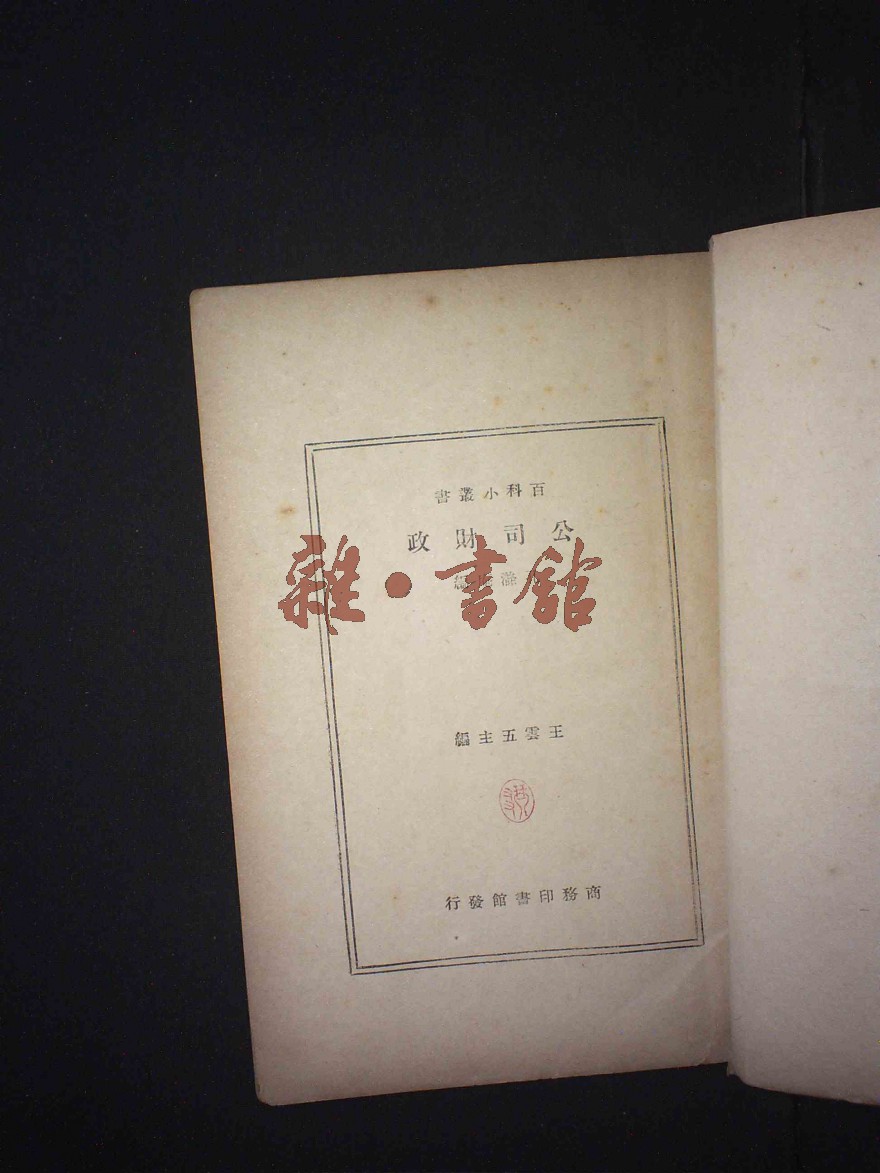 百科小叢書
公司財政
編
雜·書館
王雲五主編
商務印書館發行